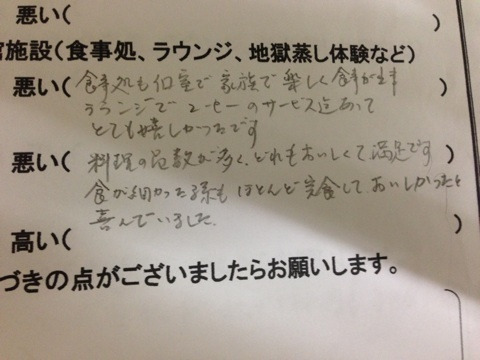 悪い( )
館施設(食事処、ラウンジ、地獄蒸し体験など)
悪い(食事処も個室で家族で楽しく食事が出来
ラウンジでコーヒーのサービス迄あって
とても嬉しかったです
悪い(料理の品数が多く、どれもおいしくて満足です
食が細かった孫もほとんど完食して、おいしかったと
喜んでいました。 )
高い( )
づきの点がございましたらお願いします。